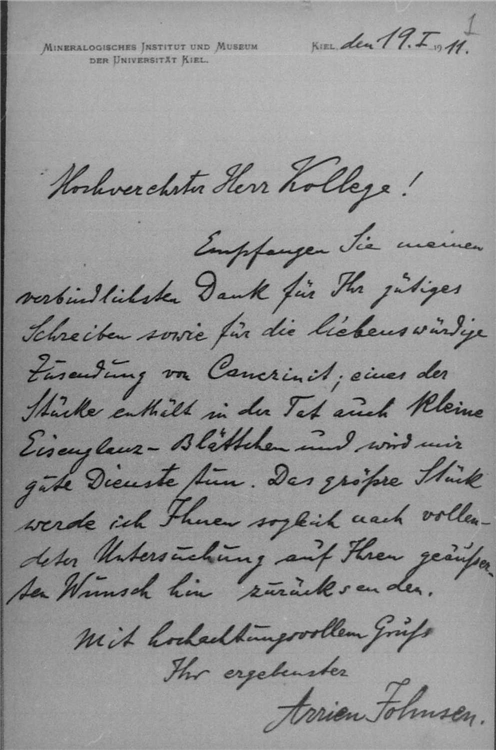 1
Mineralogisches Institut und Museum
der Universität Kiel.
Kiel, den 19. I. 1911.
Hochverehrter Herr Kollege!
Empfangen Sie meinen
verbindlichsten Dank für Ihr gütiges
Schreiben sowie für die liebenswürdige
Zusendung von Cancrinit; eines der
Stücke enthält in der Tat auch kleine
Eisenglanz-Blättchen und wird mir
gute Dienste tun. Das größre Stück
werde ich Ihnen sogleich nach vollen-
deter Untersuchung auf Ihren geäußer-
ten Wunsch hin zurücksenden.
Mit hochachtungsvollem Gruß
Ihr ergebenster
Arrien Johnsen.